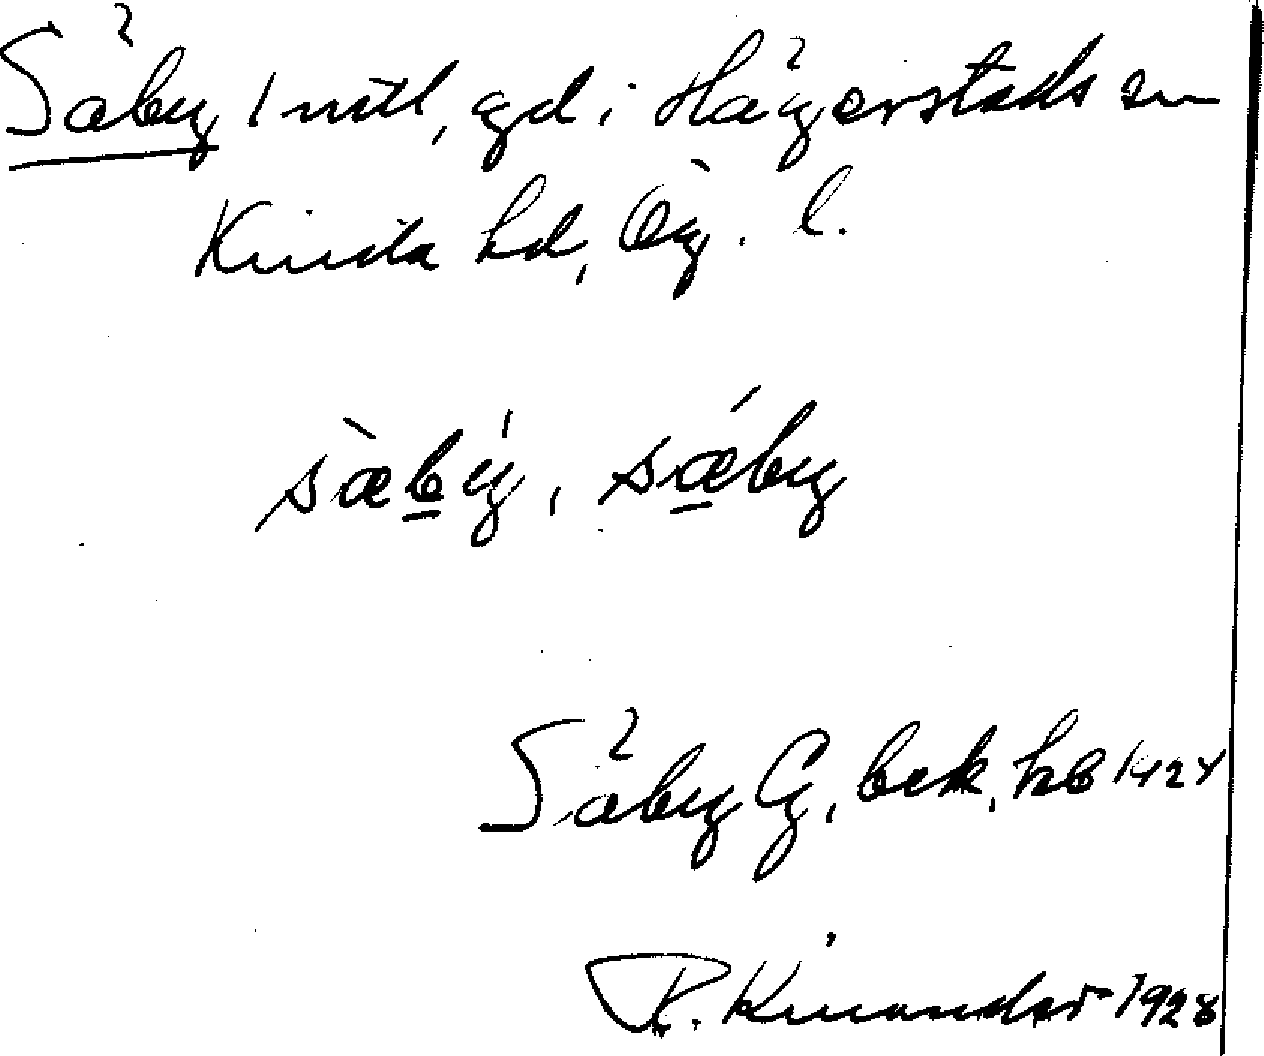 Säby 1 mtl, gd i Hägerstads sn
Kinda hd, Ög. l.
sæ̀bý, sǽby
Säby G, bek, kb 1927
R. Kinander 1928